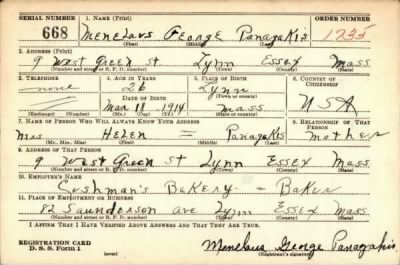 SERIAL NUMBER 1. NAME (Print) ORDER NUMBER
668 Menelaus George Panagakis 1235
(First) (Middle) (Last)
2. ADDRESS (Print)
9 West Green St Lynn Essex Mass
(Number and street or R. F. D. number) (Town) (County) (State)
3. TELEPHONE 4. AGE IN YEARS 5. PLACE OF BIRTH 6. COUNTRY OF CITIZENSHIP
none 26 Lynn
DATE OF BIRTH (Town or county)
Mar 18 1914 Mass. USA
(Exchange) (Number) (Mo.) (Day) (Yr.) (State or country)
7. NAME OF PERSON WHO WILL ALWAYS KNOW YOUR ADDRESS 8. RELATIONSHIP OF THAT PERSON
Mrs Helen = Panagakis Mother
(Mr., Mrs., Miss) (First) (Middle) (Last)
9. ADDRESS OF THAT PERSON
9 West Green St Lynn Essex Mass.
(Number and street or R. F. D. number) (Town) (County) (State)
10. EMPLOYER'S NAME
Cushman's Bakery - Baker
11. PLACE OF EMPLOYMENT OR BUSINESS
82 Saunderson Ave Lynn Essex Mass
(Number and street or R. F. D. number) (Town) (County) (State)
I AFFIRM THAT I HAVE VERIFIED ABOVE ANSWERS AND THAT THEY ARE TRUE.
REGISTRATION CARD
D. S. S. FORM 1 (over) Menelaus George Panagakis
(Registrant's signature)